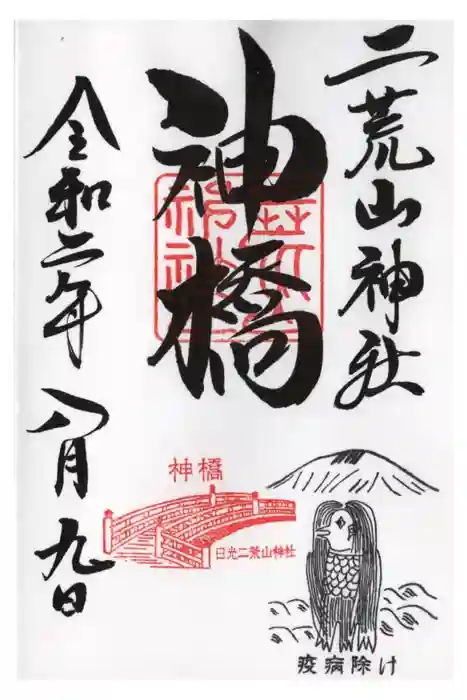 二荒山神社
神橋
令和二年
八月九日
神橋
日光二荒山神社
疫病除け